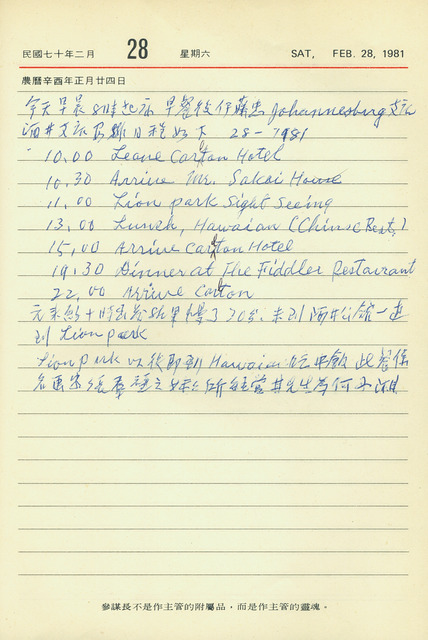 民國七十年二月 28 星期六 SAT, FEB. 28, 1981
農曆辛酉年正月廿四日
今天早晨8時起床 早餐後伊藤忠 Johannesburg 支店
酒井支店長 日程如下 28-1981
10.00 Leave Carlton Hotel
10.30 Arrive Mr. Sakai House
11.00 Lion park Sight Seeing
13.00 Lunch, Hawaian (Chinse Rest.)
15.00 Arrive Carlton Hotel
19.30 Dinner at The Fiddler Restaurant
22.00 Arrive Carlton
元來約十時 結果 了30分, 來到酒井公館一連
到 Lion park
Lion park 以後即到 Hawaian 吃中飯 此餐係
名画家 之 所經營 其先生為何
參謀長不是作主管的附屬品，而是作主管的靈魂。